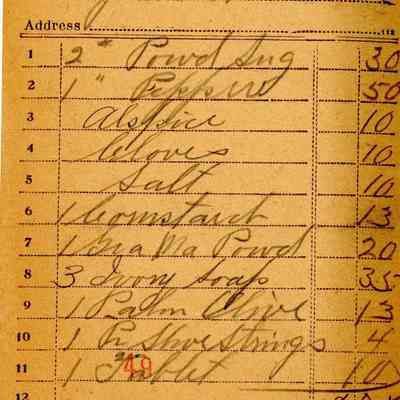 Address
1 2" Powd Sug 30
2 1 " Pepper 50
3 Alspice 10
4 Cloves 10
5 Salt 10
6 1 Cornstarch 13
7 1 Powd 20
8 3 Ivory Soap 35
9 1 Palm Olive 13
10 1 Pr Shoe Strings 4
11 1 Tablet 10
49
12